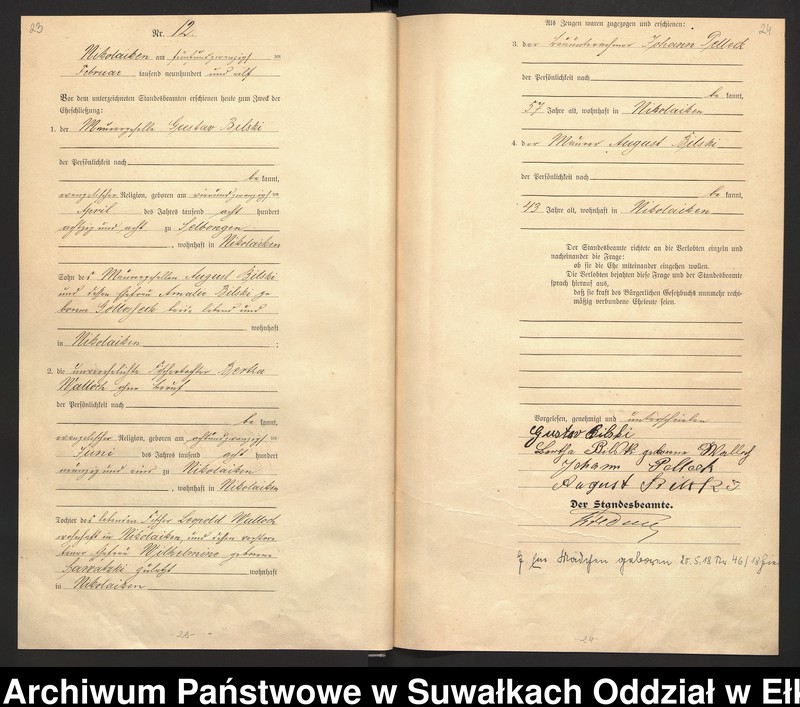 23
Nr. 12.
Nikolaiken am fünfundzwanzigsten
Februar tausend neunhundert und elf
Vor dem unterzeichneten Standesbeamten erschienen heute zum Zweck der
Eheschließung:
1. der Maurergeselle Gustav Bilski
der Persönlichkeit nach
be kannt,
evangelischer Religion, geboren am vierundzwanzigsten
April des Jahres tausend acht hundert
achtzig und acht zu Selbongen
, wohnhaft in Nikolaiken
Sohn des Maurergesellen August Bilski
und dessen Ehefrau Amalie Bilski ge
borene beide lebend und
wohnhaft
in Nikolaiken ;
2. die unverehelichte Fischertochter Bertha
Walloch ohne Beruf
der Persönlichkeit nach
be kannt,
evangelischer Religion, geboren am achtundzwanzigsten
Juni des Jahres tausend acht hundert
neunzig und eins zu Nikolaiken
, wohnhaft in Nikolaiken
Tochter des Fischer Leopold Walloch
wohnhaft in Nikolaiken, und dessen verstor
bene Ehefrau Wilhelmine geborene
zuletzt wohnhaft
in Nikolaiken
- 23 -
24
Als Zeugen waren zugezogen und erschienen:
3. der Bauunternehmer Johann Pelleck
der Persönlichkeit nach
be kannt,
57 Jahre alt, wohnhaft in Nikolaiken
4. der Maurer August Bilski
der Persönlichkeit nach
be kannt,
43 Jahre alt, wohnhaft in Nikolaiken
Der Standesbeamte richtete an die Verlobten einzeln und
nacheinander die Frage:
ob sie die Ehe miteinander eingehen wollen.
Die Verlobten bejahten diese Frage und der Standesbeamte
sprach hierauf aus,
daß sie kraft des Bürgerlichen Gesetzbuchs nunmehr recht-
mäßig verbundene Eheleute seien.
Vorgelesen, genehmigt und unterschrieben
Gustav Bilski
Bertha Bilski geborene Walloch
Johann Pelleck
August Bilski
Der Standesbeamte.
Ein Mädchen geboren 20.5.18 Nr. 46/18
- 24 -
Archiwum Państwowe w Suwałkach Oddział w Ełk